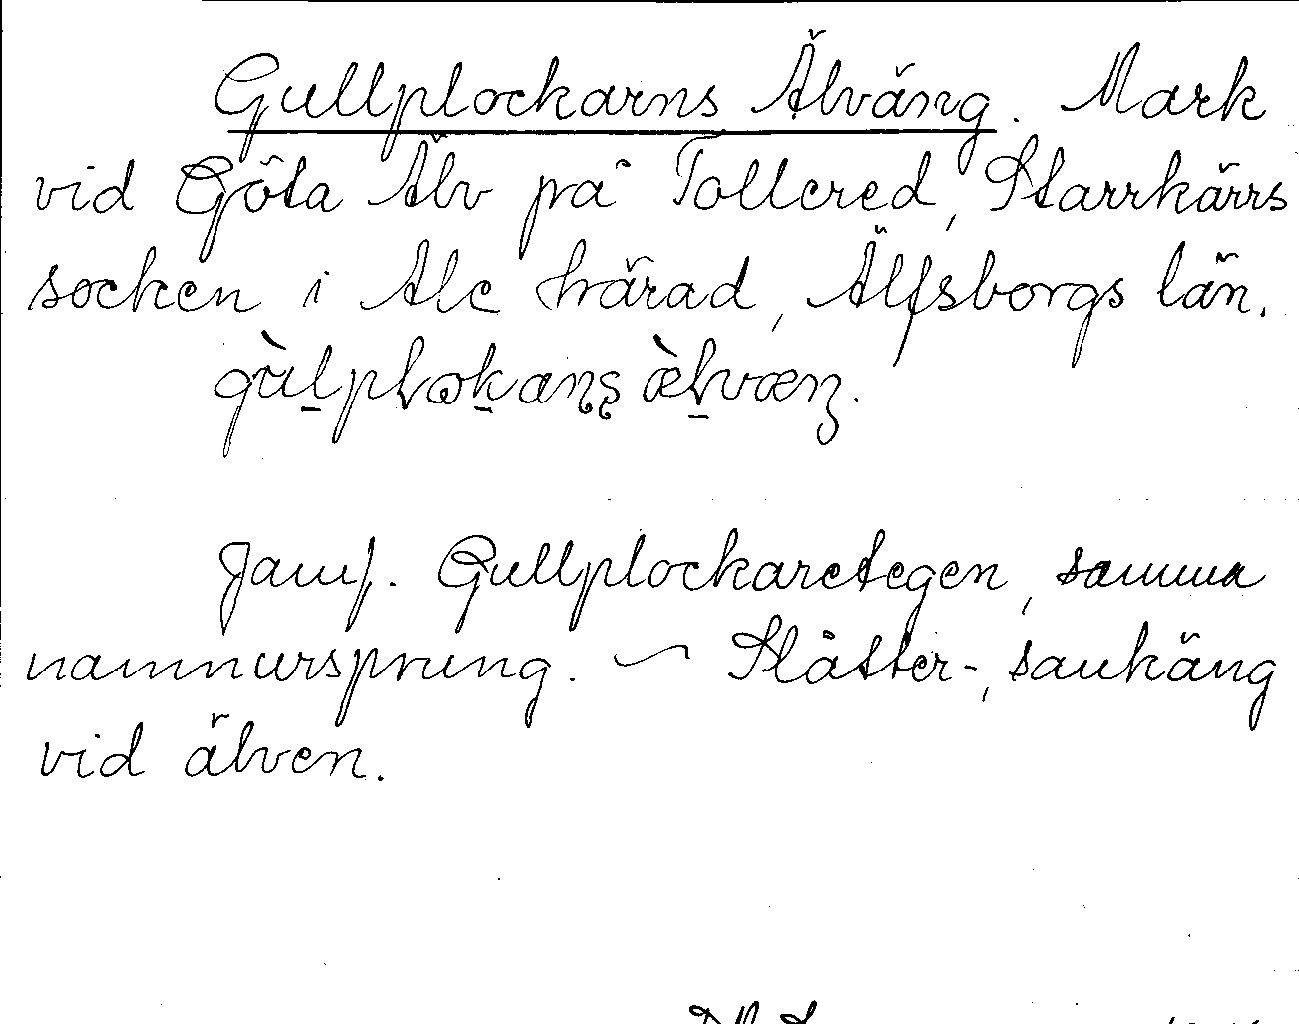 Gullplockarns Älväng. Mark
vid Göta Älv på Tollered, Starrkärrs
socken i Ale härad, Älfsborgs län.
gùl̠plɔk̠aṇṣ æ̀l̠væŋ.
Jämf. Gullplockaretegen, samma
namnursprung. – Slåtter-, sankäng
vid älven.